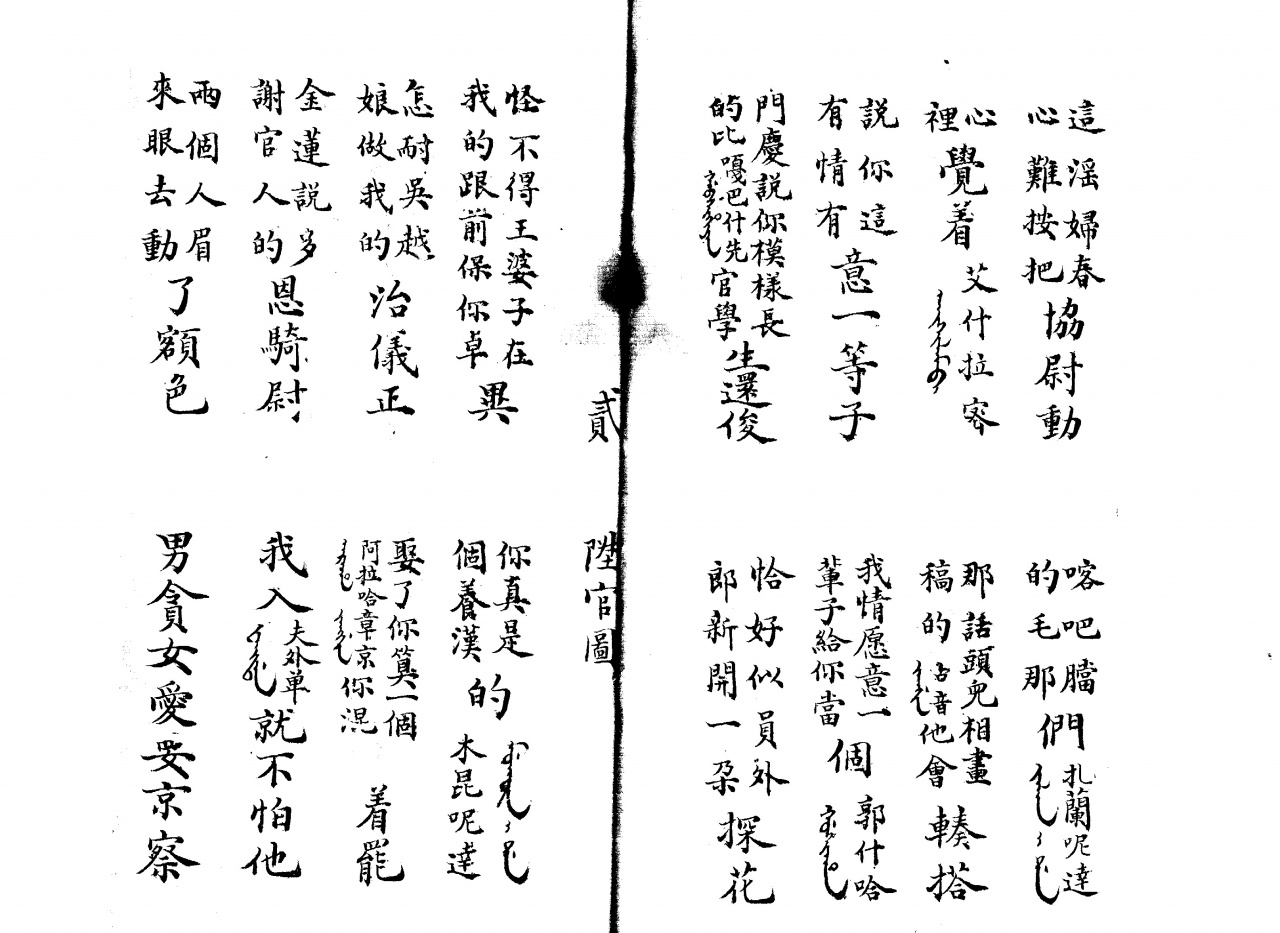 這滛婦春
心難按把
協尉動
喀吧膅
的毛那
們
扎蘭呢達
心
裡
覺着
艾什拉密
那話頭兒相畫
稿的
占音
他會
輳搭
説你這
有情有
意一等子
我情愿意一
輩子給你當
個
郭什哈
門慶説你模樣長
的比
嘎巴什先
官學
生還俊
恰好似員外
郎新開一朶
探花
貳
陞官圖
怪不得王婆子在
我的跟前保你卓
異
你真是
個養漢
的
木昆呢達
怎耐吳越
娘做我的
治儀正
娶了你算一個
阿拉哈章京
你混
着罷
金蓮説多
謝官人的
恩騎尉
我入
夫外单
就不怕他
兩個人眉
來眼去動
了額色
男貪女愛要京察